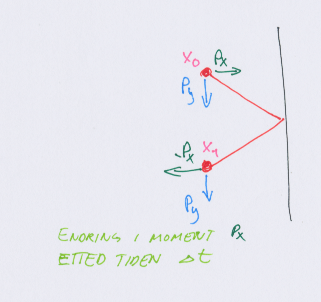 x₀ Pₓ
Py
-Pₓ x₁
Py
ENDRING I MOMENT Pₓ
ETTED TIDEN Δt